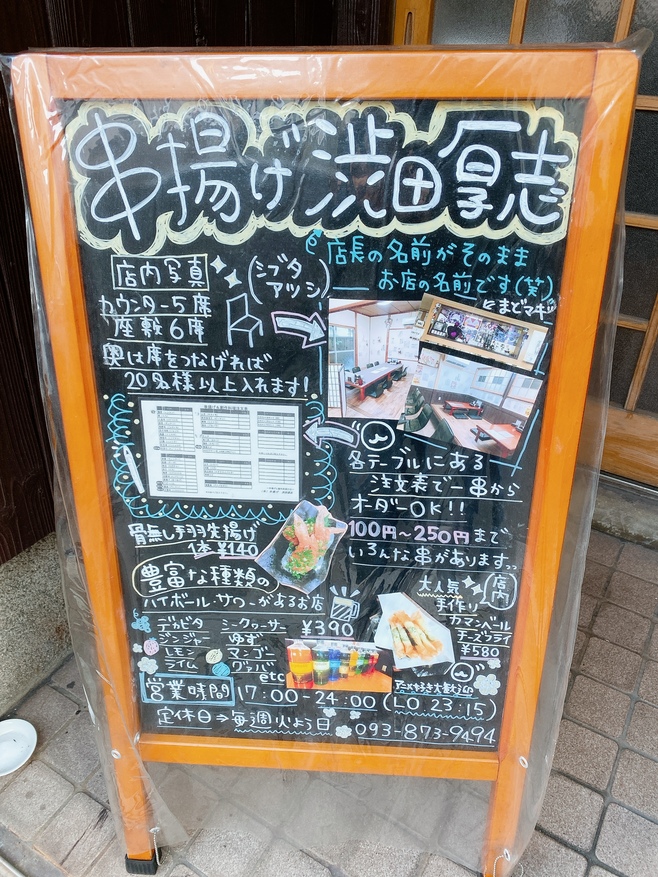 串揚げ 渋田厚志
店長の名前がそのまま
お店の名前です(笑)
(シブタ
アツシ)
店内写真
カウンター5席
座敷6席
奥は席をつなげれば
20名様以上入れます!
各テーブルにある
注文表で一串から
オーダーOK!!
100円〜250円まで
いろんな串があります
骨無し手羽先揚げ
1本¥140
豊富な種類の
ハイボール・サワーがあるお店
デカビタ
ジンジャー
レモン
ライム
シークヮーサー
ゆず
マンゴー
グァバ
etc
¥390
大人気
店内
手作り
カマンベール
チーズフライ
¥580
営業時間 17:00-24:00 (LO 23:15)
定休日⇒毎週火よう日 093-873-9494